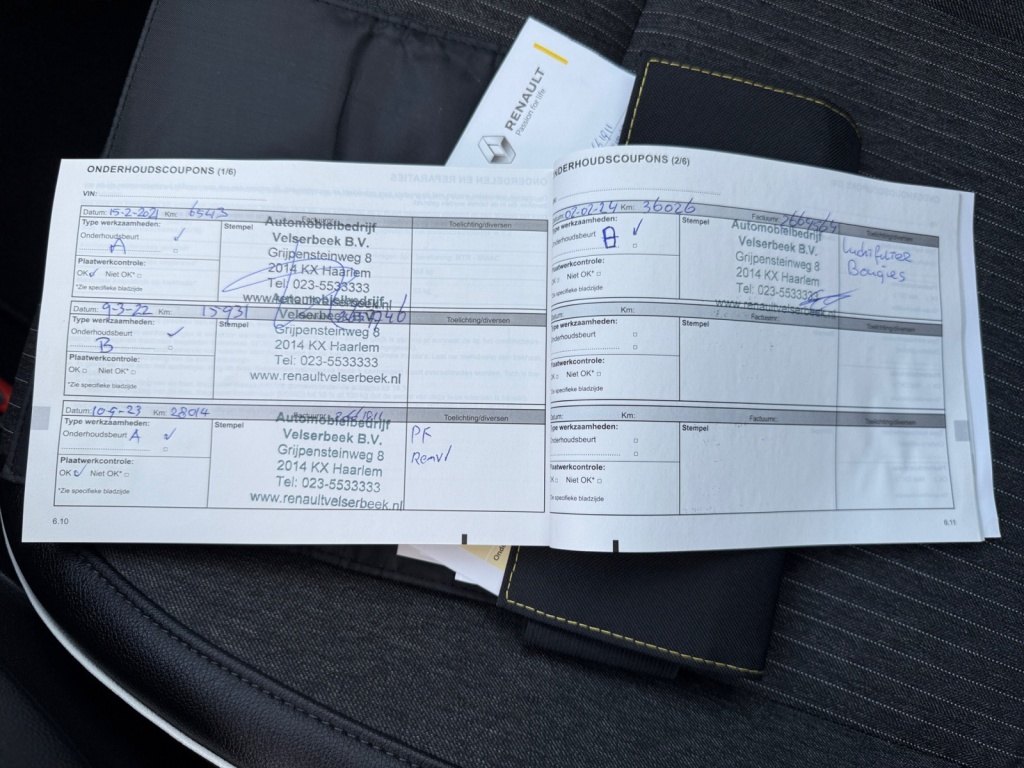 RENAULT
Passion for life
ONDERHOUDSCOUPONS (1/6)
VIN:
Datum: 15-2-2021 Km: 6543
Type werkzaamheden:
Onderhoudsbeurt ✓
A
Plaatwerkcontrole:
OK ✓ Niet OK* □
*Zie specifieke bladzijde
Stempel
Automobielbedrijf
Velserbeek B.V.
Grijpensteinweg 8
2014 KX Haarlem
Tel: 023-5533333
www.renaultvelserbeek.nl
Toelichting/diversen
Datum: 9-3-22 Km: 15931
Type werkzaamheden:
Onderhoudsbeurt ✓
B
Plaatwerkcontrole:
OK □ Niet OK* □
*Zie specifieke bladzijde
Stempel
Automobielbedrijf
Velserbeek B.V.
Grijpensteinweg 8
2014 KX Haarlem
Tel: 023-5533333
www.renaultvelserbeek.nl
Toelichting/diversen
Datum: Km: 28014
Type werkzaamheden:
Onderhoudsbeurt A ✓
Plaatwerkcontrole:
OK ✓ Niet OK* □
*Zie specifieke bladzijde
Stempel
Automobielbedrijf
Velserbeek B.V.
Grijpensteinweg 8
2014 KX Haarlem
Tel: 023-5533333
www.renaultvelserbeek.nl
Toelichting/diversen
PF
6.10
NDERHOUDSCOUPONS (2/6)
Datum: 02-02-24 Km: 36026
Type werkzaamheden:
Onderhoudsbeurt A ✓
Plaatwerkcontrole:
Niet OK* □
Zie specifieke bladzijde
Stempel
Factuurnr:
Automobielbedrijf
Velserbeek B.V.
Grijpensteinweg 8
2014 KX Haarlem
Tel: 023-5533333
www.renaultvelserbeek.nl
Toelichting/diversen
Luchtfilter
Bougies
Km:
Type werkzaamheden:
Onderhoudsbeurt □
Plaatwerkcontrole:
Niet OK* □
Zie specifieke bladzijde
Stempel
Factuurnr:
Toelichting/diversen
Datum: Km:
Type werkzaamheden:
Onderhoudsbeurt □
Plaatwerkcontrole:
Niet OK* □
Zie specifieke bladzijde
Stempel
Factuurnr:
Toelichting/diversen
6.11